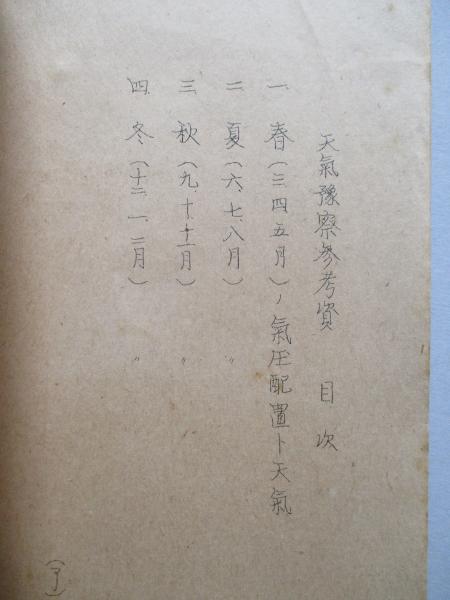 天氣豫察参考資 目次
一、春(三四五月)ノ氣圧配置ト天氣
二、夏(六、七、八月) 〃
三、秋(九、十、十一月) 〃
四、冬(十二、一、二月) 〃
(了)